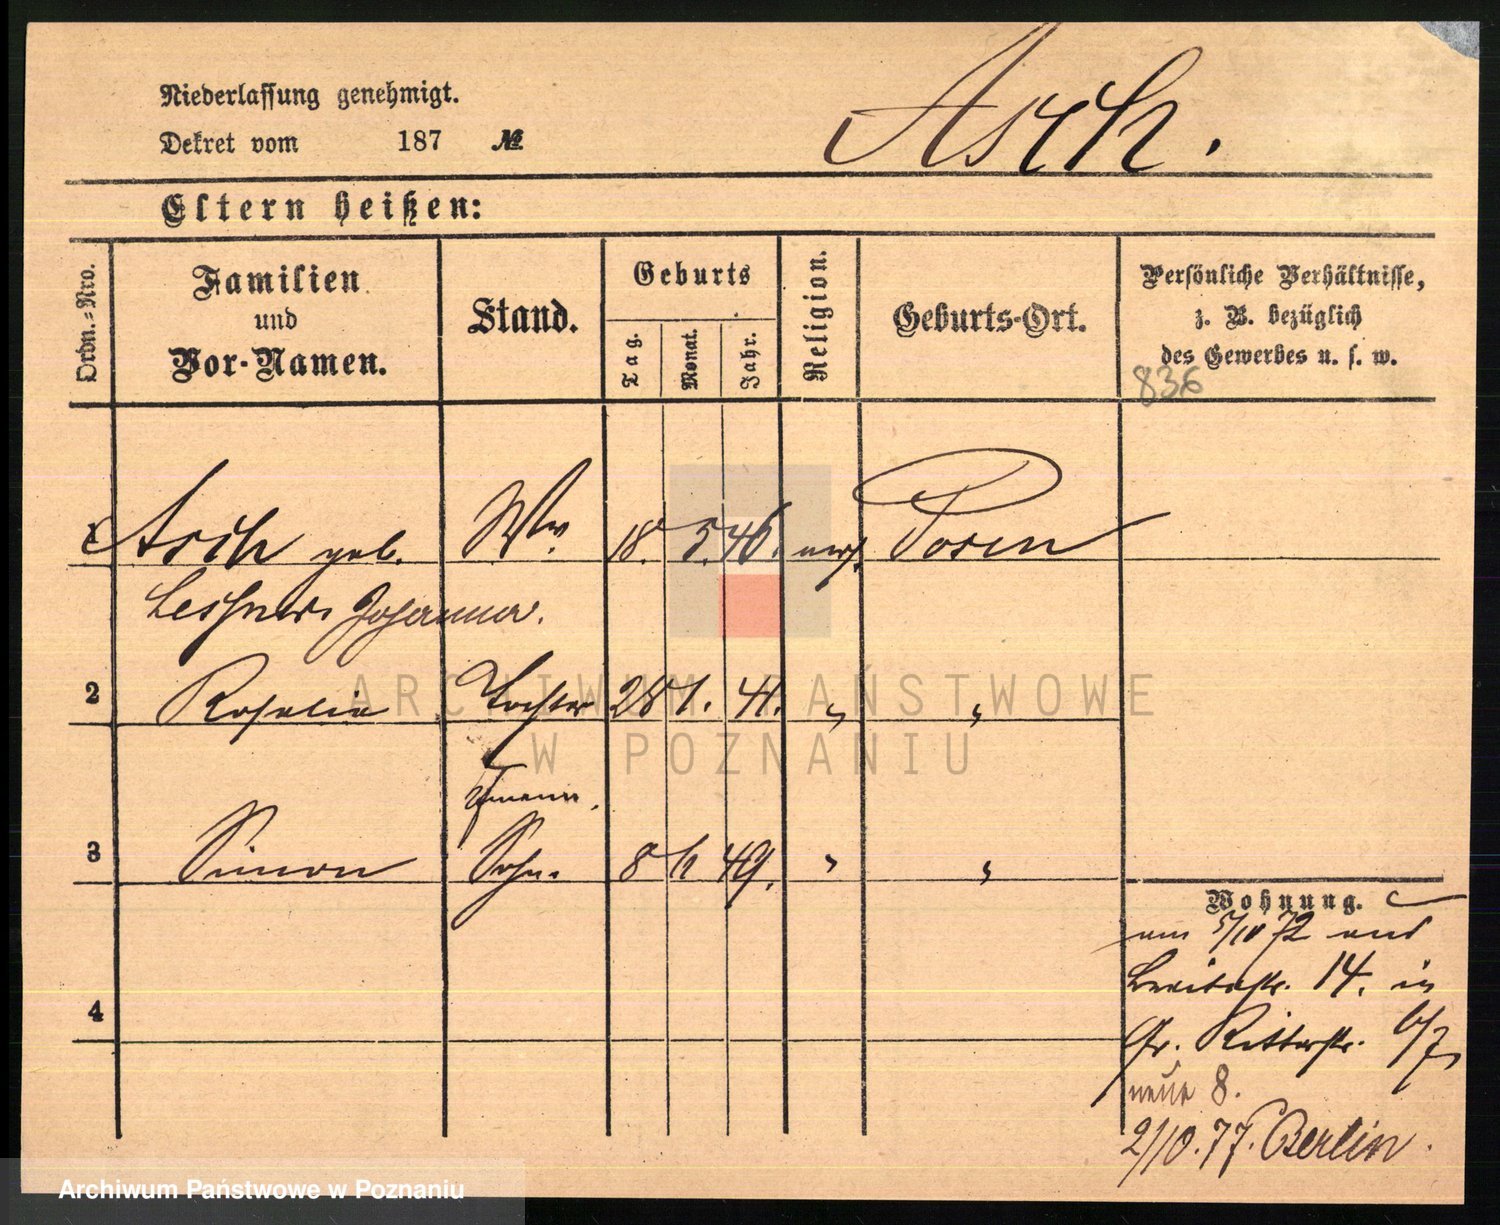 Niederlassung genehmigt.
Dekret vom 187 №
Asch.
Eltern heißen:
Ordn.=Nro.
Familien
und
Vor-Namen.
Stand.
Geburts
Tag.
Monat.
Jahr.
Religion.
Geburts-Ort.
Persönliche Verhältnisse,
z. B. bezüglich
des Gewerbes u. s. w.
836
1 Asch geb. Ww. 18. 5. 46. mos. Posen
Johanna.
2 Rosalie Tochter 28 1. 41. " "
3 Simon Sohn. 8 49. " "
4
Wohnung.
am 5/10 72 aus
Breitestr. 14. in
Gr. Ritterstr. 6/7,
neue 8.
2/10.77. Berlin.
ARCHIWUM PAŃSTWOWE
W POZNANIU
Archiwum Państwowe w Poznaniu